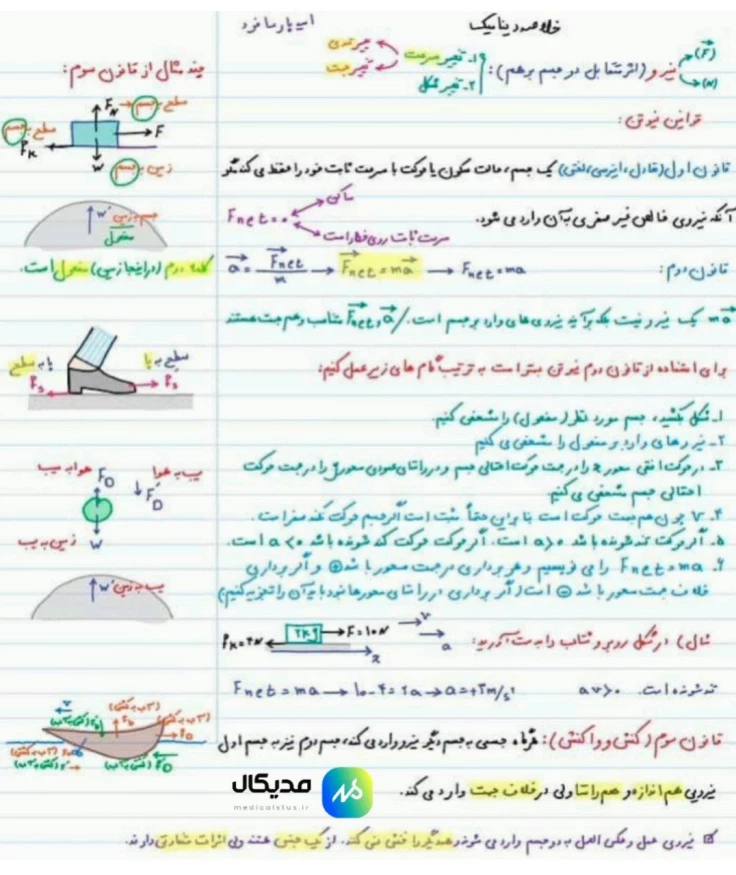 خلاصه دینامیک
نیرو (اثر متقابل دو جسم برهم): ۱- تغییر سرعت
۲- تغییر شکل
(F)
(N)
تندی
تغییر جهت
قوانین نیوتن:
قانون اول (تعادل، اینرسی، لختی) یک جسم، حالت سکون یا حرکت با سرعت ثابت خود را حفظ می کند مگر
آنکه نیروی خالص غیر صفری به آن وارد می شود.
Fnet = ۰
ساکن
سرعت ثابت روی خط راست
قانون دوم: a = Fnet / m → Fnet = ma → Fnet = ma
ma یک نیرو نیست بلکه برآیند نیروهای وارد بر جسم است. / a و Fnet متناسب و هم جهت هستند
برای استفاده از قانون دوم نیوتن بهتر است به ترتیب گام های زیر عمل کنیم:
۱- شکل بکشید، جسم مورد نظر (مفعول) را مشخص کنیم
۲- نیروهای وارد بر مفعول را مشخص می کنیم
۳- در حرکت افقی محور x را در جهت حرکت احتمالی جسم و در راستای عمودی محور y را در جهت حرکت
احتمالی جسم مشخص می کنیم
۴- v چون هم جهت حرکت است بنابراین حتماً مثبت است اگر جسم حرکت نکند صفر است.
۵- اگر حرکت تند شونده باشد a>۰ است. اگر حرکت کند شونده باشد a<۰ است.
۶- Fnet = ma را می نویسیم و هر برداری در جهت محور باشد ⊕ و اگر برداری
خلاف جهت محور باشد ⊖ است (اگر برداری در راستای محورها نبود باید آن را تجزیه کنیم)
مثال) در شکل روبرو شتاب را بدست آورید:
fk=۴N
۲kg
F=۱۰N
x
v
a
تند شونده است. av>۰
Fnet = ma → ۱۰-۴ = ۲a → a = +۳m/s²
قانون سوم (کنش و واکنش): هرگاه جسمی به جسم دیگر نیرو وارد می کند، جسم دوم نیز به جسم اول
نیرویی هم اندازه و هم راستا ولی در خلاف جهت وارد می کند.
نیروی عمل و عکس العمل به دو جسم وارد می شوند همدیگر را خنثی نمی کنند. از یک جنس هستند ولی اثرات متفاوتی دارند.
چند مثال از قانون سوم:
سطح به جسم
FN
F
fk
سطح به جسم
W
زمین به جسم
W'
جسم به زمین
مفعول
کلمه دوم (در اینجا زمین) مفعول است.
سطح به پا
پا به سطح
Fs
Fs
هوا به سیب
سیب به هوا
FD
F'D
W
زمین به سیب
W'
سیب به زمین
مدیکال
medicalstus.ir